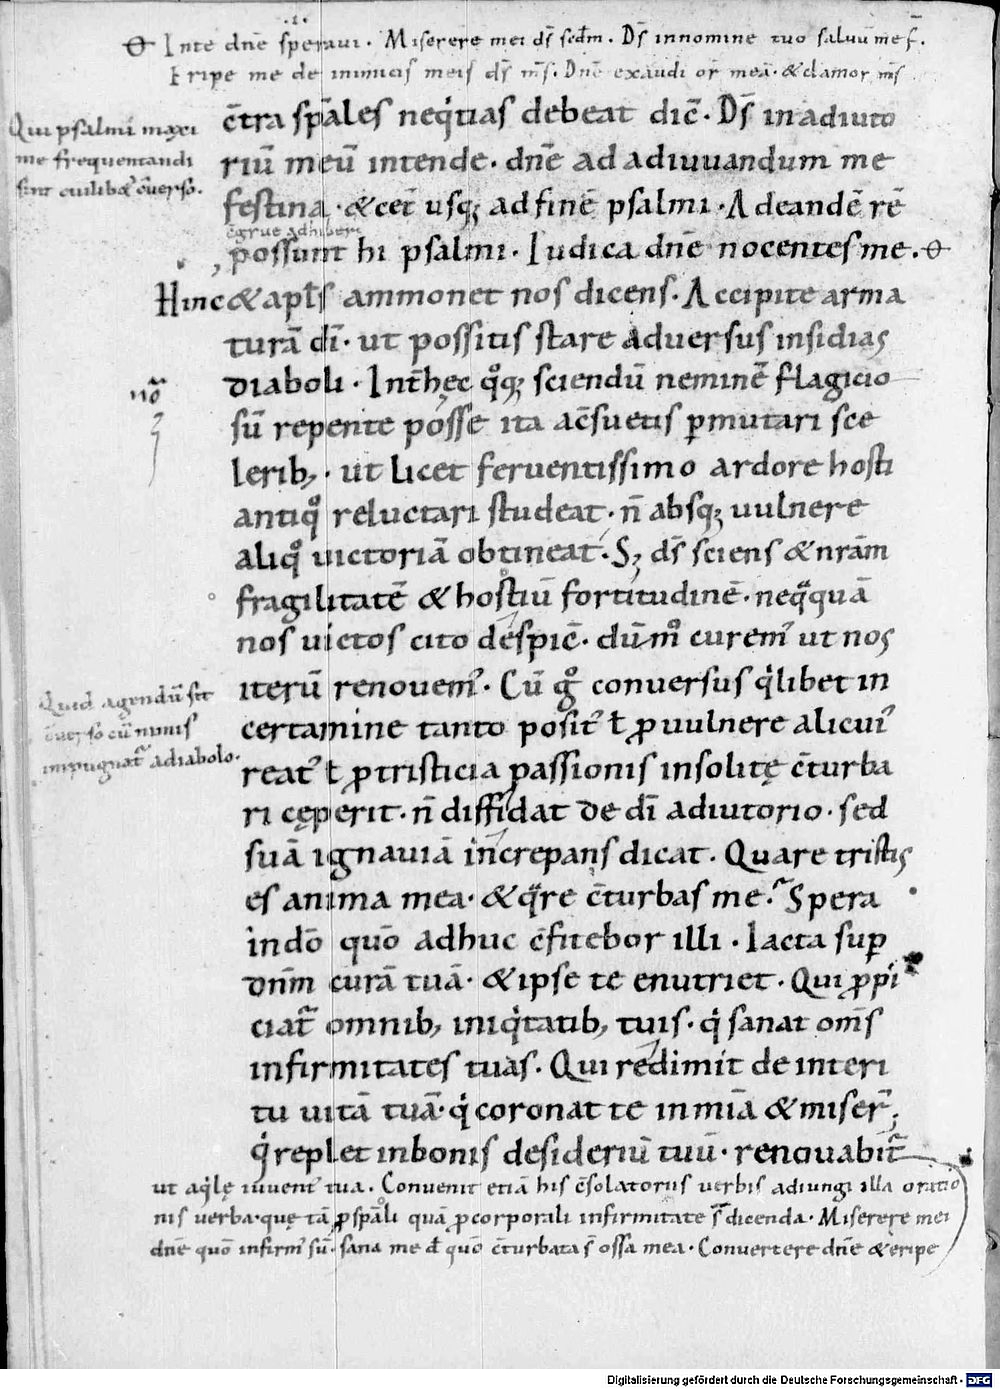 .i.
Inte dn̄e speraui. Miserere mei ds̄ scd̄m. Ds̄ innomine tuo saluū me f̄.
Eripe me de inimicis meis ds̄ ms̄. Dn̄e exaudi or̄ meā. &clamor ms̄
c̄tra sp̄ales neq'tias debeat dic̄. Ds̄ in adiuto
Qui psalmi maxi
me frequentandi
sint cuilib& c̄uerso.
riū meū intende. dn̄e ad adiuuandum me
festina. &cet̄ usq; adfinē psalmi. Adeandē rē
c̄grue adhiberi
possunt hi psalmi. Iudica dn̄e nocentes me.
Hinc & apl̄s ammonet nos dicens. Accipite arma
turā dī. ut possitis stare aduersus insidias
diaboli. Int̄ hęc qºq; sciendū neminē flagicio
sū repente posse ita ac̄suetis p̄mutari sce
lerib, . ut licet feruentissimo ardore hosti
antiqº reluctari studeat. n̄ absq; uulnere
aliqº uictoriā obtineat. S; ds̄ sciens & nr̄am
fragilitatē & hostiū fortitudinē. neq̄quā
nos uictos cito despic̄. dū mº curem' ut nos
iterū renouem'. Cū gº conuersus q'libet in
Quid agendū sit
c̄uerso cū nimis
impugnat̄ adiabolo.
certamine tanto posit' ł p uulnere alicui'
reat' ł p tristicia passionis insolitę c̄turba
ri cęperit. n̄ diffidat de dī adiutorio. sed
suā ignauiā increpans dicat. Quare tristis
es anima mea. & q̄re c̄turbas me. Spera
indō quō adhuc c̄fitebor illi. Iacta sup
dn̄m curā tuā. & ipse te enutriet. Qui ppi
ciat̄ omnib, iniq'tatib, tuis. q' sanat om̄s
infirmitates tuas. Qui redimit de interi
tu uitā tuā. q' coronat te in mīa & miser̄;
q' replet inbonis desideriū tuū. renouabit̄
ut aq'lę iuuent' tua. Conuenit etiā his c̄solatoriis uerbis adiungi illa oratio
nis uerba. quę tā p sp̄ali quā p corporali infirmitate s̄ dicenda. Miserere mei
dn̄e quō infirm' sū. sana me dn̄e quō c̄turbata s̄ ossa mea. Conuertere dn̄e & eripe
Digitalisierung gefördert durch die Deutsche Forschungsgemeinschaft - DFG